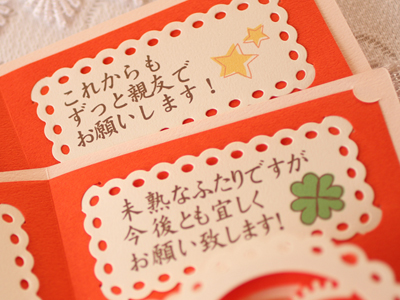 これからも
ずっと親友で
お願いします！
未熟なふたりですが
今後とも宜しく
お願い致します!